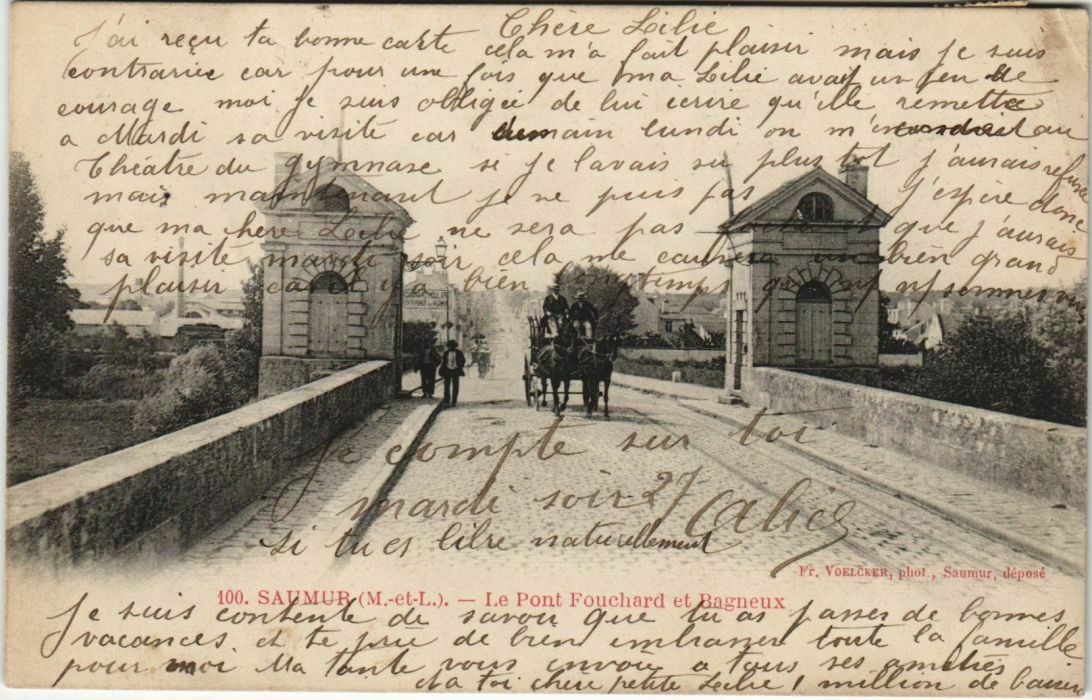 Chère Lilie
J'ai reçu ta bonne carte cela m'a fait plaisir mais je suis
contrariée car pour une fois que ma Lilie avait un peu de
courage moi je suis obligée de lui écrire qu'elle remette
a Mardi sa visite car demain lundi on m'en au
Théâtre du gymnase se je lavais su plus tot j'aurais refusé
mais maintenant je ne puis pas j'espère donc
que ma chère Lilie ne sera pas et que j'aurais
sa visite mardi soir cela me causera un bien grand
plaisir car il y a bien temps que nous
Je compte sur toi
mardi soir 27 Alice
si tu es libre naturellement
Fr. VOELCKER, phot., Saumur, déposé
100. SAUMUR (M.-et-L.). — Le Pont Fouchard et Bagneux
Je suis contente de savoir que tu as passer de bonnes
vacances et te prie de bien embrasser toute la famille
pour moi Ma tante vous envoie a tous ses amitiés
A toi chère petite Lilie 1 million de baisers